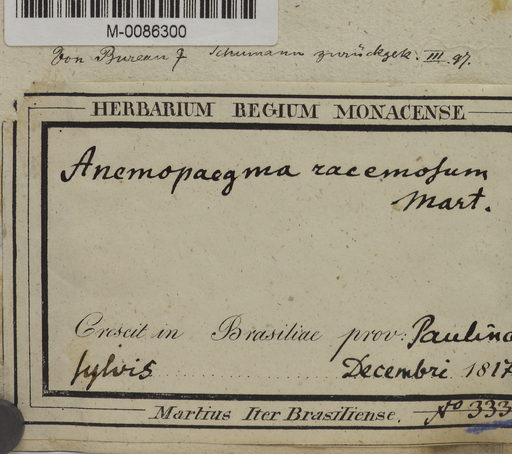 M-0086300
Von Bureau & Schumann zurückgek. III. 97.
HERBARIUM REGIUM MONACENSE
Anemopaegma racemosum
Mart.
Crescit in Brasiliae prov: Paulina
sylvis Decembri 1817
Martius Iter Brasiliense. No 333